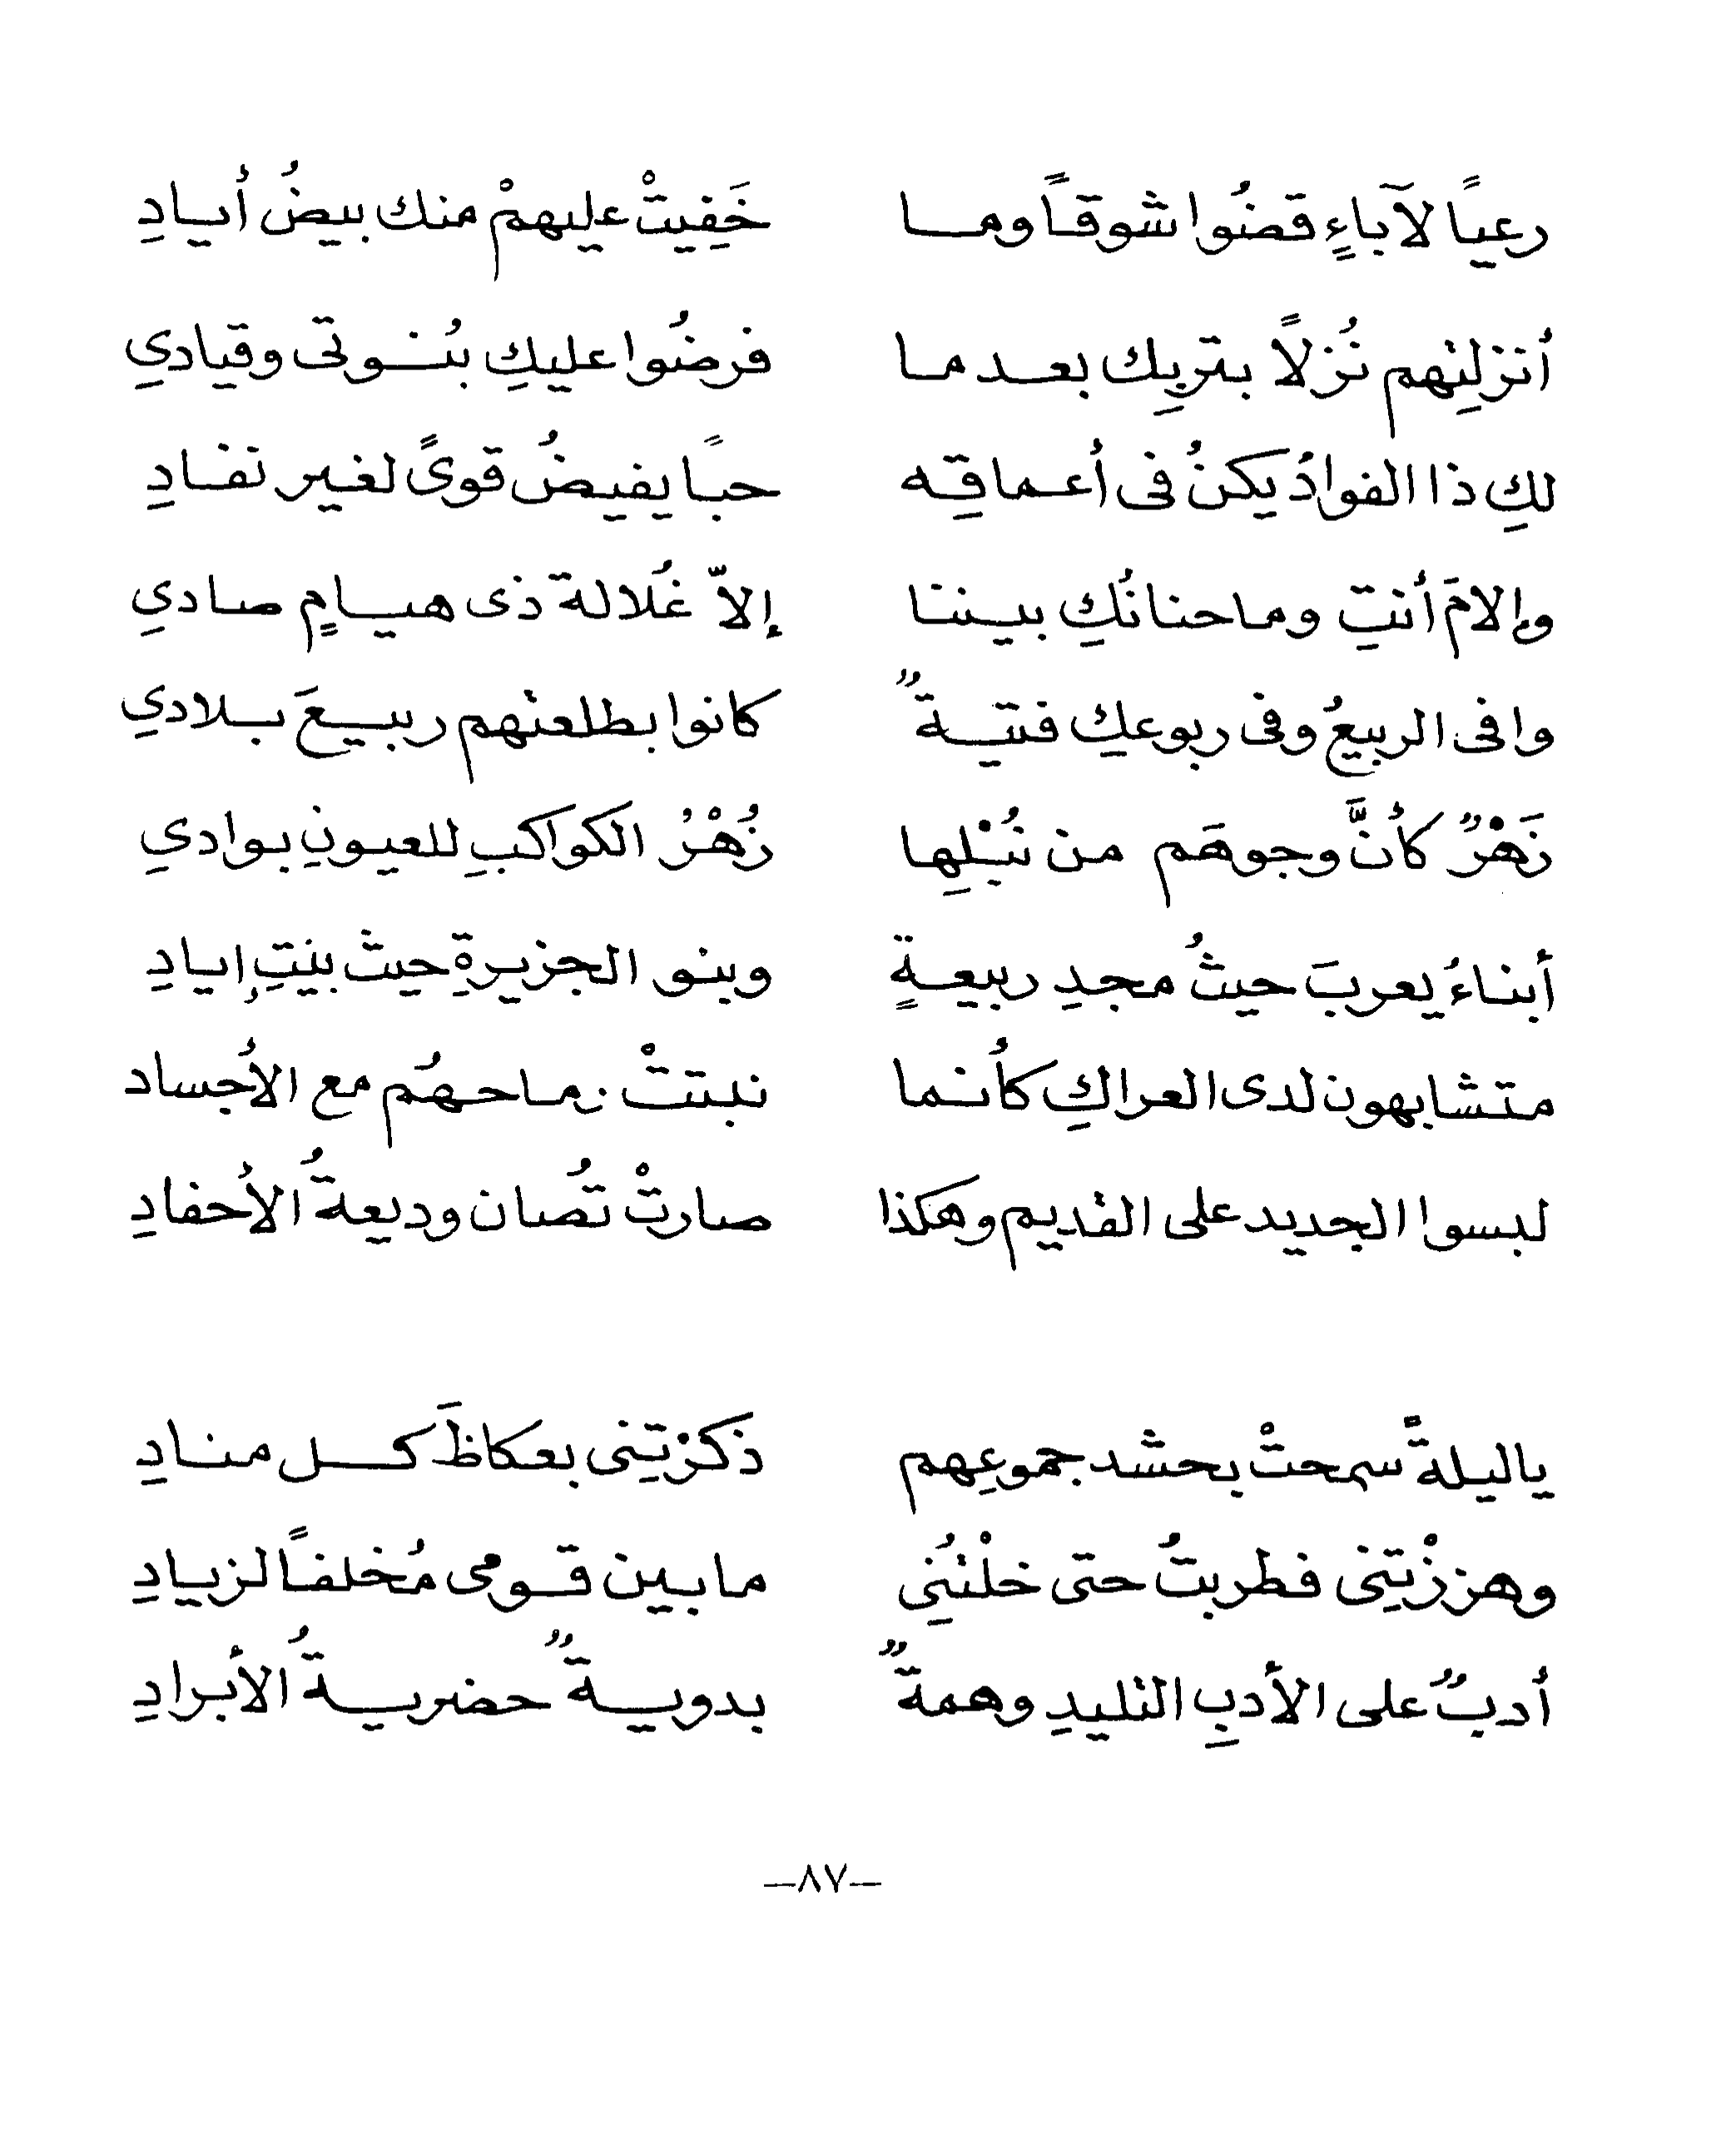 رعياً لآباءٍ قضُوا شوقاً وما خَفِيتْ عليهمْ منك بيضُ أيادِ
أنزلتِهم نُزلاً بتربِك بعدما فرضُوا عليكِ بُنوتى وقيادي
لكِ ذا الفوادُ يكنُ فى أعماقِه حباً يفيضُ قوىً لغير نفادِ
وإلامَ أنتِ وما حنانُكِ بيننا إلاّ غُلالة ذى هيامٍ صادي
وافى الربيعُ وفى ربوعكِ فتيةٌ كانوا بطلعتهم ربيعَ بلادي
زَهْرٌ كأنَّ وجوهَهم من نُبْلِها زُهْرُ الكواكبِ للعيونِ بوادي
أبناءُ يعربَ حيثُ مجدِ ربيعةٍ وبنو الجزيرةِ حيث بيتِ إيادِ
متشابهون لدى العراكِ كأنما نبتتْ رماحهُم مع الأجساد
لبسوا الجديد على القديم وهكذا صارتْ تُصان وديعةُ الأحفادِ
ياليلةً سمحتْ بحشد جموعِهم ذكرْتِنى بعكاظَ كل منادِ
وهززْتِنى فطربتُ حتى خلْتُنِى مابين قومى مُخلفاً لزيادِ
أدبٌ على الأدبِ التليدِ وهمةٌ بدويةٌ حضريةُ الأبرادِ
—٨٧—